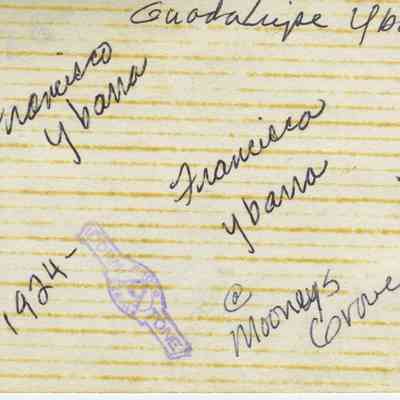 Guadalupe Yba
Francisco
Ybarra
Francisca
Ybarra
1924-
@
Mooneys
Grove